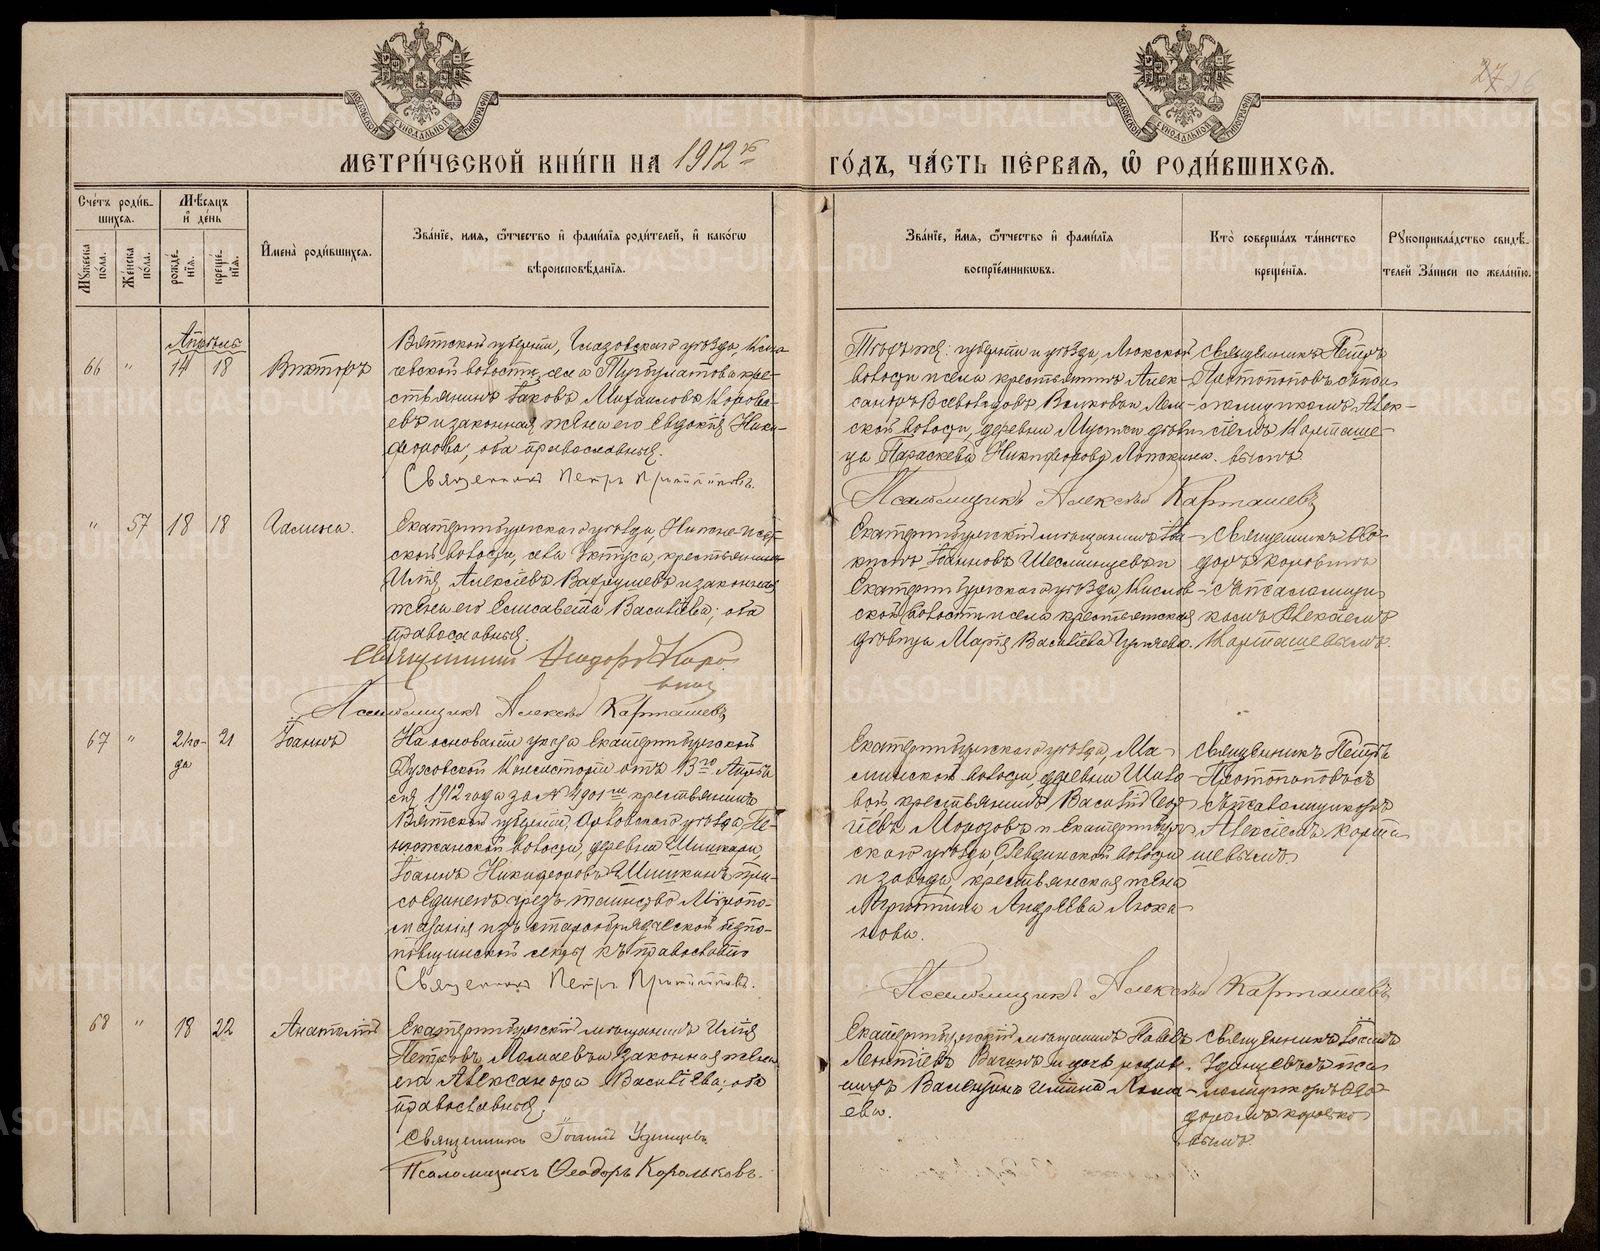 27 26
МЕТРИ́ЧЕСКОЙ КНИ́ГИ НА 1912 й
ГО́ДЪ, ЧА́СТЬ ПЕ́РВАЯ, Ѽ РОДИ́ВШИХСЯ.
Сче́тъ роди́в-
шихся.
Мѣ́сяцъ
и҆ де́нь
Мꙋ́жеска
по́ла.
Же́нска
по́ла.
рожде́
нїя.
креще́
нїя.
И҆мена̀ роди́вшихся.
Зва́нїе, имя, ѻ҆́тчество и҆ фами́лїя роди́телей, и҆ како́гѡ
вѣ́роисповѣ́данїя.
Зва́нїе, и҆́мя, ѻ҆́тчество и҆ фами́лїя
воспрїе́мникѡвъ.
Кто̀ соверша́лъ та́инство
креще́нїя.
Рꙋкоприкла́дство свидѣ́-
телей За́писи по жела́нїю.
Апрѣль
66 " 14 18 Викторъ
Вятской губернїи, Глазовскаго уѣзда,
волости, села крес-
стьянинъ Іаковъ Михаиловъ Корова-
евъ и законная жена его Евдокія Ники-
форова; оба православные.
Священникъ Петръ Протопоповъ.
Той-же губернїи и уѣзда, Люкской
волости и села крестьянинъ Алек-
сандръ Всеволодовъ Волковъ и
ской волости, деревни дѣви-
ца Параскева Никифорова
Священникъ Петръ
Протопоповъ съ пса-
ломщикомъ Алек-
сѣемъ Карташе-
вымъ
Псаломщикъ Алексѣй Карташевъ
" 57 18 18 Галина.
Екатеринбургскаго уѣзда, Нижне-Исет-
ской волости, села Уктуса, крестьянинъ
Илія Алексіевъ Вахрушевъ и законная
жена его Елисавета Васильева; оба
православные.
Священникъ Ѳеодоръ Коро-
винъ
Псаломщикъ Алексѣй Карташевъ
Екатеринбургскій мѣщанинъ
Іоанновъ и
Екатеринбургскаго уѣзда, Кислов-
ской волости и села крестьянская
дѣвица Марія Васильева
Священникъ Ѳео-
доръ Коровинъ
съ псаломщи-
комъ Алексѣемъ
Карташевымъ.
67 " 2 го- 21 Іоаннъ
да
На основаніи указа Екатеринбургской
Духовной Консисторіи отъ 13го Апрѣ-
ля 1912 года за № 4901 крестьянинъ
Вятской губерніи, Орловскаго уѣзда,
волости, деревни Шишкари,
Іоаннъ Никифоровъ Шишкинъ при-
соединенъ чрезъ таинство Мѵропо-
мазанія изъ старообрядческой безпо-
повщинской секты къ православію
Священникъ Петръ Протопоповъ.
Екатеринбургскаго уѣзда, Ма-
минской волости, деревни
крестьянинъ Василій Геор-
гіевъ Морозовъ и Екатеринбург-
скаго уѣзда, Ревдинской волости
и завода, крестьянская жена
Андреева Люха-
нова.
Священникъ Петръ
Протопоповъ съ
псаломщикомъ
Алексіемъ Карта-
шевымъ
Псаломщикъ Алексѣй Карташевъ
68 " 18 22 Анатолій
Екатеринбургскій мѣщанинъ Илія
Петровъ Ломаевъ и законная жена
его Александра Васильева; оба
православные.
Священникъ Іоаннъ Удинцевъ.
Псаломщикъ Ѳеодоръ Корольковъ.
Екатеринбургскій мѣщанинъ Павелъ
Леонтіевъ Вагинъ и дочь родив-
шихъ Валентина Иліина Лома-
ева.
Священникъ Іоаннъ
Удинцевъ съ пса-
ломщикомъ Ѳео-
доромъ Королько-
вымъ.